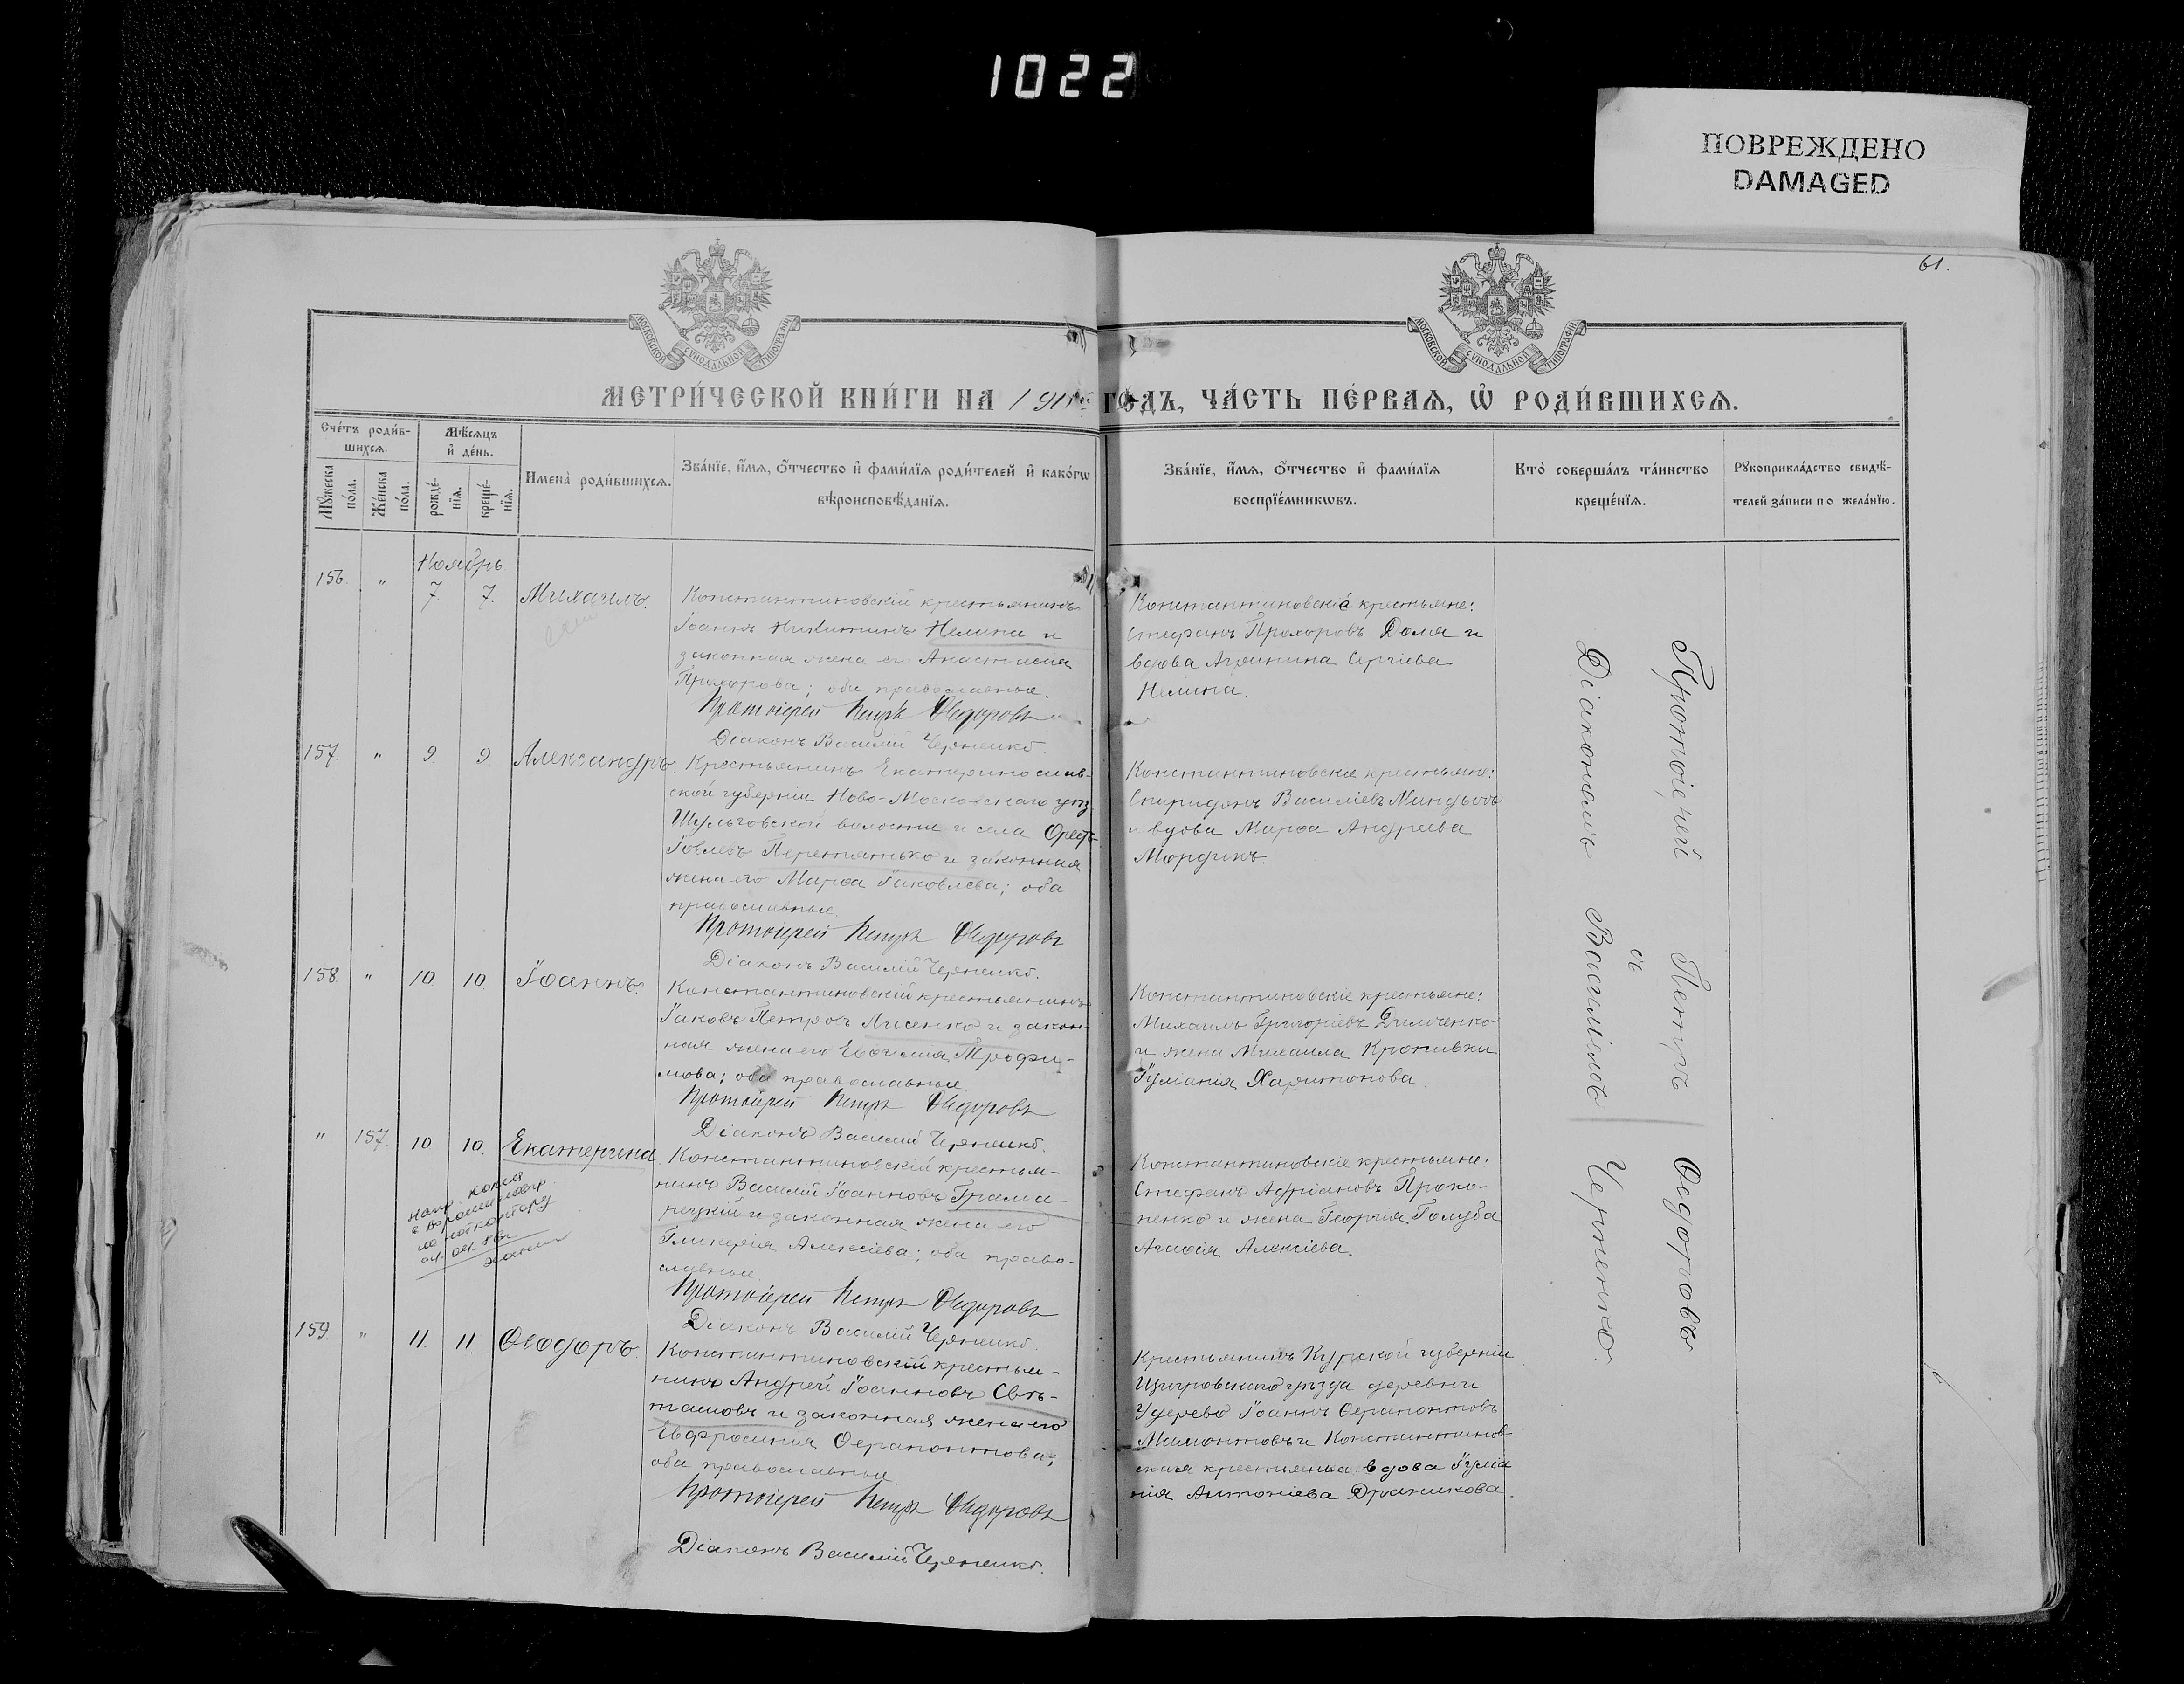 1022
ПОВРЕЖДЕНО
DAMAGED
61.
МОСКОВСКОЙ СѴНОДАЛЬНОЙ ТИПОГРАФІИ
МОСКОВСКОЙ СѴНОДАЛЬНОЙ ТИПОГРАФІИ
МЕТРИ́ЧЕСКОЙ КНИ́ГИ НА 191 ГОДЪ, ЧА́СТЬ ПЕ́РВАѦ, Ѡ҆ РОДИ́ВШИХСѦ.
Сче́тъ роди́в-
шихсѧ.
Мꙋ́жеска по́ла.
Же́нска по́ла.
Мѣ́сѧцъ
и҆ де́нь.
рожде́-
нїѧ.
креще́-
нїѧ.
И҆мена̀ роди́вшихсѧ.
Зва́нїе, и҆́мѧ, ѻ҆́тчество и҆ фами́лїѧ роди́телей и҆ како́гѡ
вѣроисповѣ́данїѧ.
Зва́нїе, и҆́мѧ, ѻ҆́тчество и҆ фами́лїѧ
воспрїе́мникѡвъ.
Кто̀ соверша́лъ та́инство
креще́нїѧ.
Рꙋкоприкла́дство свидѣ́-
телей за́писи по жела́нїю.
Ноябрь
156. " 7. 7. Михаилъ.
Константиновскій крестьянинъ
Іоаннъ Никитинъ Нелипа и
законная жена его Анастасія
Прохорова; оба православные.
Протоіерей Петръ Ѳедоровъ
Діаконъ Василій Черненко.
Константиновскіе крестьяне:
Стефанъ Прохоровъ Доля и
вдова Агрипина Сергіева
Нелипа.
157. " 9. 9. Александръ.
Крестьянинъ Екатеринослав-
ской губерніи Ново-Московскаго уѣз.
Шульговской волости и села Орестъ
Іовлевъ Перетятько и законная
жена его Марѳа Іаковлева; оба
православные.
Протоіерей Петръ Ѳедоровъ
Діаконъ Василій Черненко.
Константиновскіе крестьяне:
Спиридонъ Василіевъ
и вдова Марѳа Андреева
Мордикъ.
158. " 10 10 Іоаннъ.
Константиновскій крестьянинъ
Іаковъ Петровъ Лисенко и закон-
ная жена его Евѳимія Трофи-
мова; оба православные.
Протоіерей Петръ Ѳедоровъ
Діаконъ Василій Черненко.
Константиновскіе крестьяне:
Михаилъ Григоріевъ Димченко
и жена Михаила Кропивки
Іуліанія Харитонова.
" 157. 10 10. Екатерина.
Константиновскій крестья-
нинъ Василій Іоанновъ Грама-
рецкій и законная жена его
Гликерія Алексіева; оба право-
славные.
Протоіерей Петръ Ѳедоровъ
Діаконъ Василій Черненко.
Константиновскіе крестьяне:
Стефанъ Адріановъ Проко-
пенко и жена Георгія Голуба
Агаѳія Алексіева.
копія
159. " 11. 11. Ѳеодоръ.
Константиновскій крестья-
нинъ Андрей Іоанновъ Свѣ-
ташовъ и законная жена его
Евфросинія Ѳерапонтова;
оба православные.
Протоіерей Петръ Ѳедоровъ
Діаконъ Василій Черненко.
Крестьянинъ Курской губерніи
Щигровскаго уѣзда деревни
Удерева Іоаннъ Ѳерапонтовъ
Мамонтовъ и Константинов-
ская крестьянка вдова Іуліа
нія Антоніева Драникова.
Протоіерей Петръ Ѳедоровъ
съ
Діакономъ Василіемъ Черненко.